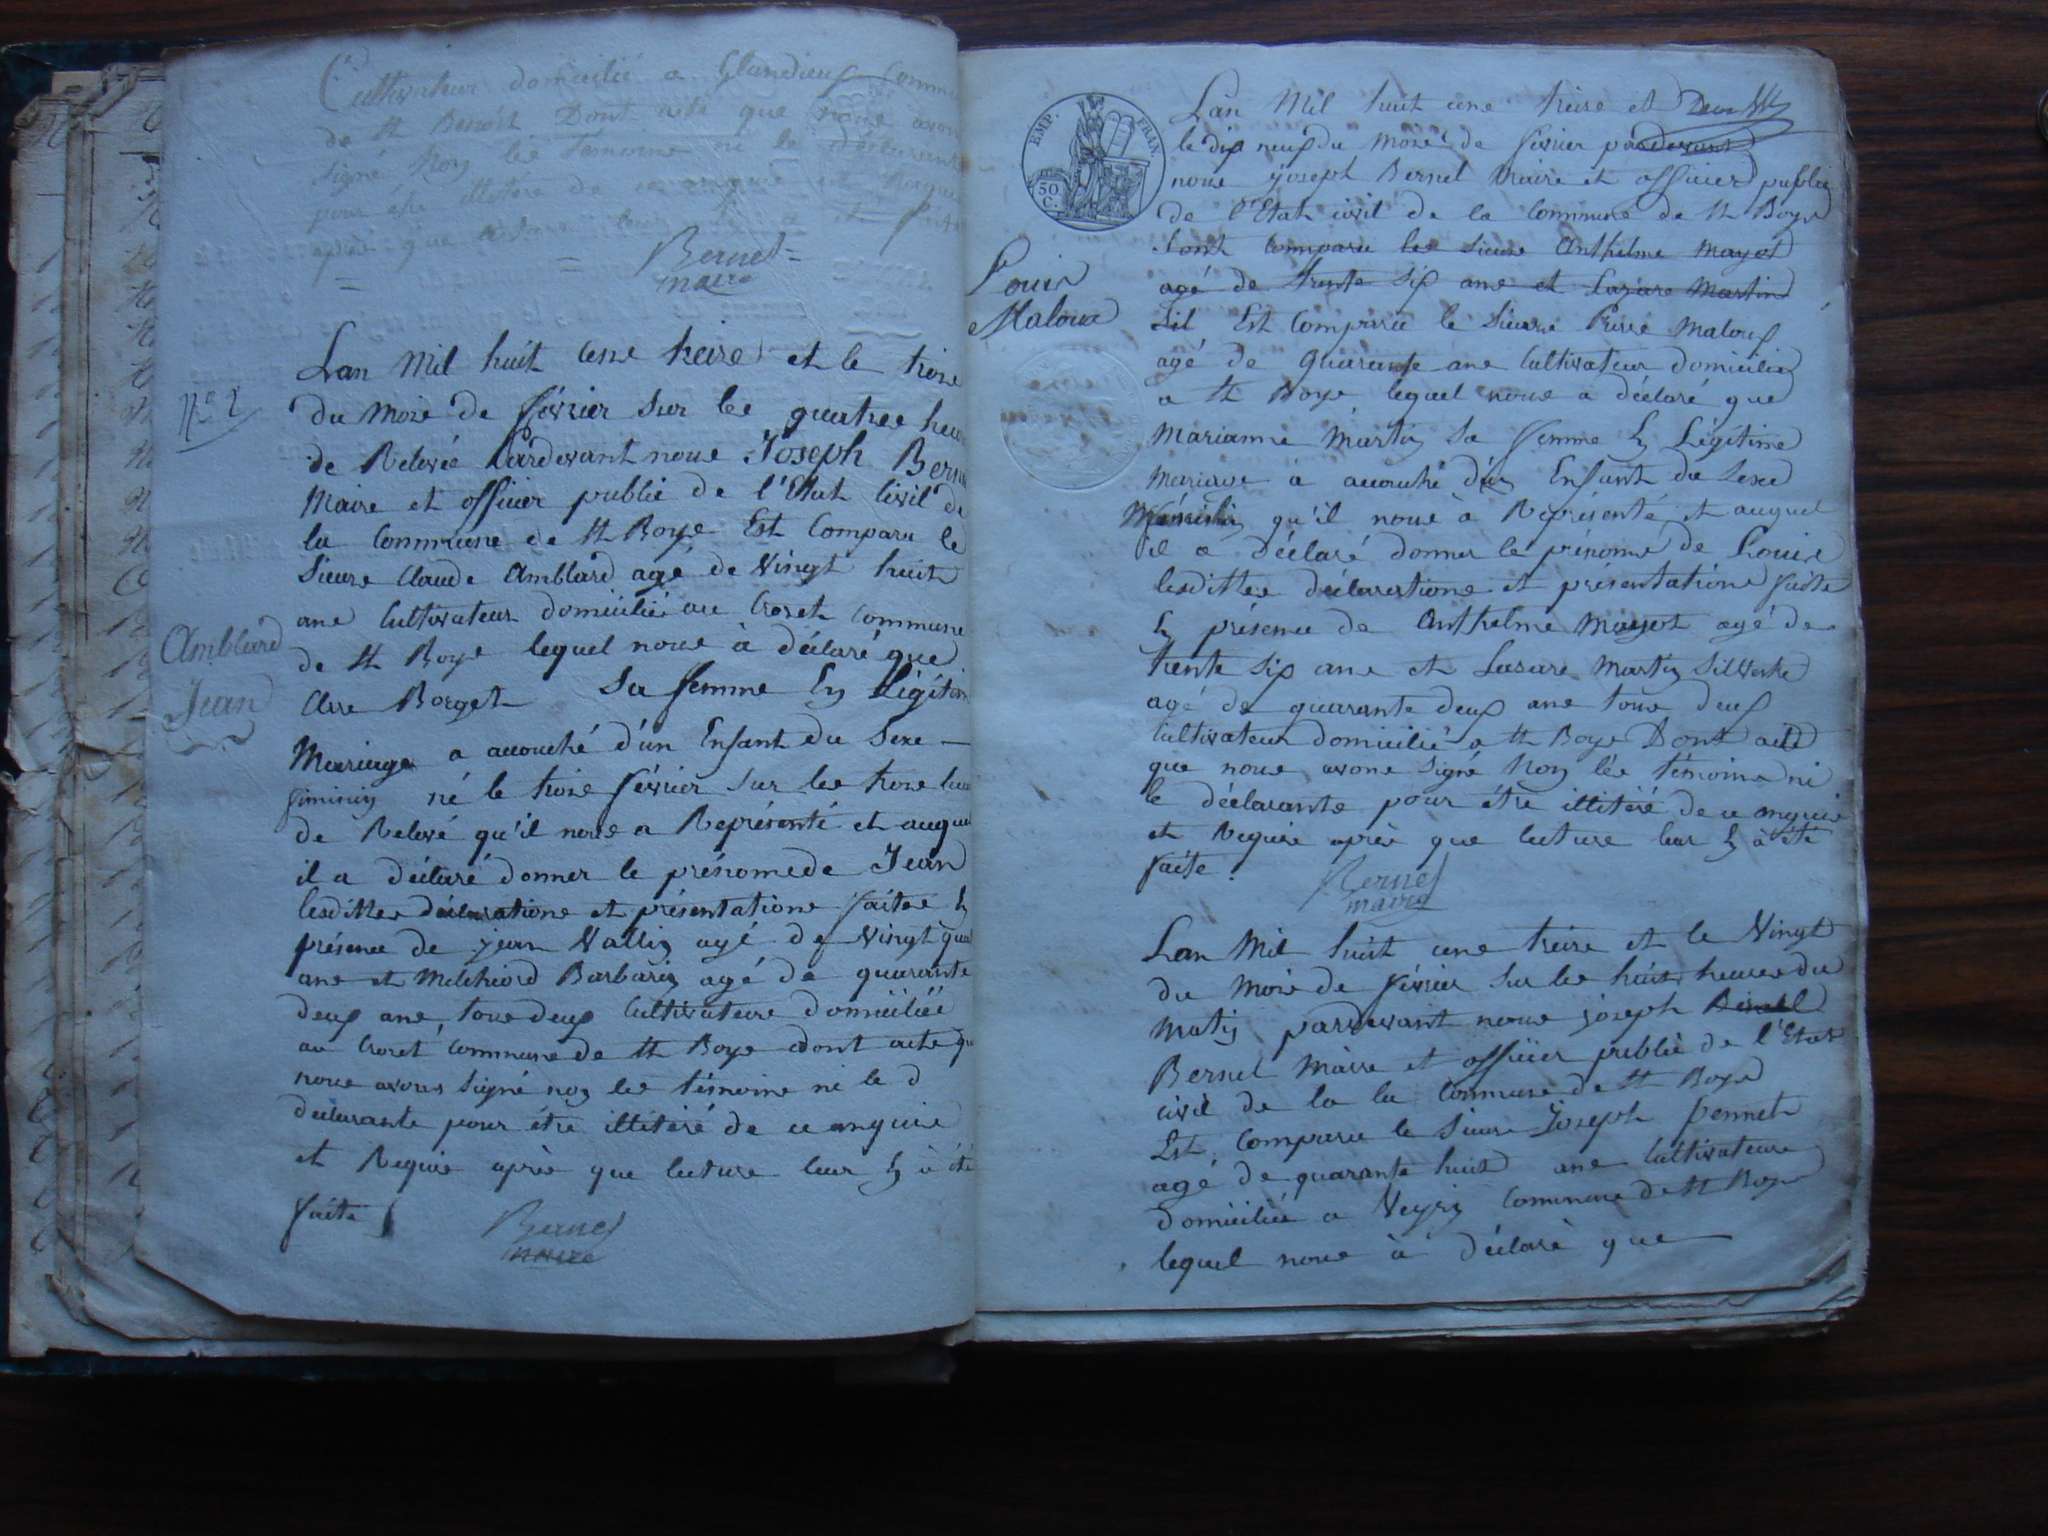 Cultivateur domicilié a Glandieux Comm
de St Benoit Dont acte que nous avon
signé Non les temoins ni le déclarant
pour étre illitéré de ce enquis et Requis
après que lecture leur a été faite
Bernel
maire
N° 2
Amblard
Jean
Lan Mil huit cens treize et le trois
du Mois de février sur les quatres heu
de Relevée Pardevant nous Joseph Bern
Maire et officier public de l'Etat Civil de
la Commune de St Boys Est Comparu le
Sieurs Claude Amblard agé de Vingt huit
ans Cultivateur domicilié au Crozet commune
de St Boys lequel nous à déclaré que
Clere Borget Sa femme En Légitim
Mariage a accouché d'un Enfant du Sexe
feminin né le trois février sur les trois heu
de Relevé qu'il nous a Représenté et auque
il a déclaré donner le prénomede Jean
lesdittes déclarations et présentations faites En
présence de jean Vallin agé de Vingt qua
ans et Melchiord Barbarin agé de quarante
deux ans tous deux Cultivateurs domiciliés
au Crozet Commune de St Boys dont acte qu
nous avons signé non les témoins ni le d
déclarants pour étre illitéré de ce enquis
et Requis après que lecture leur En à été
faite
Bernel
maire
EMP. FRAN.
50
C.
Louis
Maloux
Lan Mil huit cens treize et
le dix neuf du Mois de février pardevant
nous joseph Bernel Maire et officier public
de l'Etat civil de la Commune de St Boys
Sont comparu les sieurs Anthelme Mayot
agé de trente six ans et Lazare Martin
Sil Est Comparu le Sieurs Pierre Maloux
agé de quarante ans Cultivateur domicilié
a St Boys lequel nous a déclaré que
Marianne Martin Sa femme En Légitime
Mariage à accouché d'un Enfant du Sexe
qu'il nous à Représenté et auquel
il a déclaré donner le prénoms de Louis
lesdittes déclarations et présentations faite
En présence de Anthelme Mayot agé de
trente Six ans et Lazare Martin Silvestre
agé de quarante deux ans tous deux
Cultivateur domicilié a St Boys Dont acte
que nous avons signé Non les témoins ni
le déclarants pour étre illitéré de ce enquis
et Requis après que lecture leur En à été
faite.
Bernel
maire
Lan Mil huit cens treize et le Vingt
du Mois de février sur les huit heures du
matin pardevant nous joseph Bernel
Bernel Maire et officier public de l'Etat
civil de la la Commune de St Boys
Est Comparu le Sieurs Joseph Pennet
agé de quarante huit ans Cultivateurs
domiciliée a Veyrin Commune de St Boys
lequel nous à déclaré que